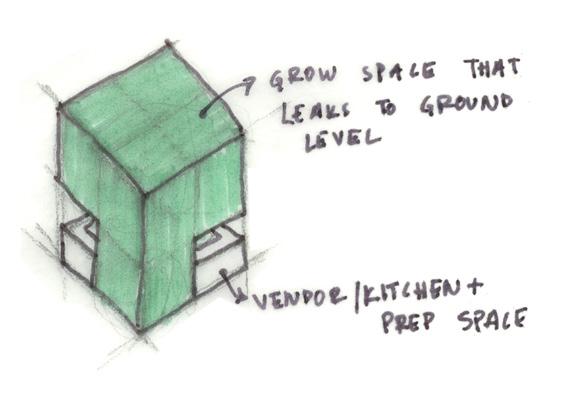 GROW SPACE THAT
LEAKS TO GROUND
LEVEL
VENDOR/KITCHEN+
PREP SPACE